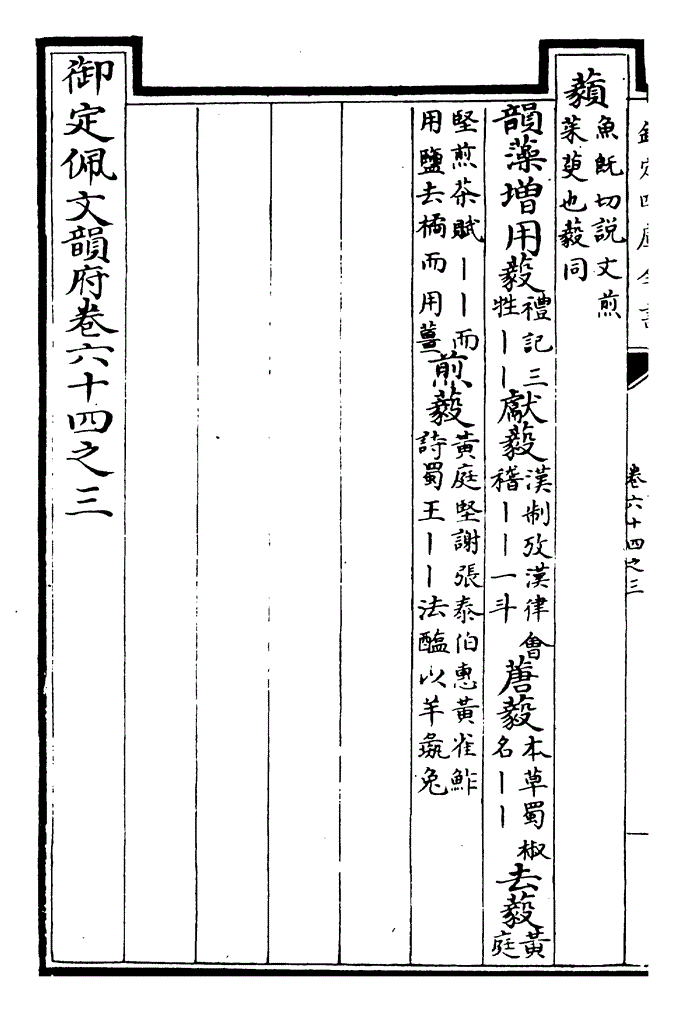 卷六十四之三
魚旣切說文煎
茱萸也藙同
韻藻增用藙禮記三牲丨丨獻藙漢制攷漢律會稽丨丨一斗蓎藙本草蜀椒名丨丨去藙黃庭
堅煎茶賦丨丨而用鹽去橘而用薑煎藙黃庭堅謝張泰伯惠黃雀鮓詩蜀王丨丨法醢以羊彘兔
御定佩文韻府卷六十四之三